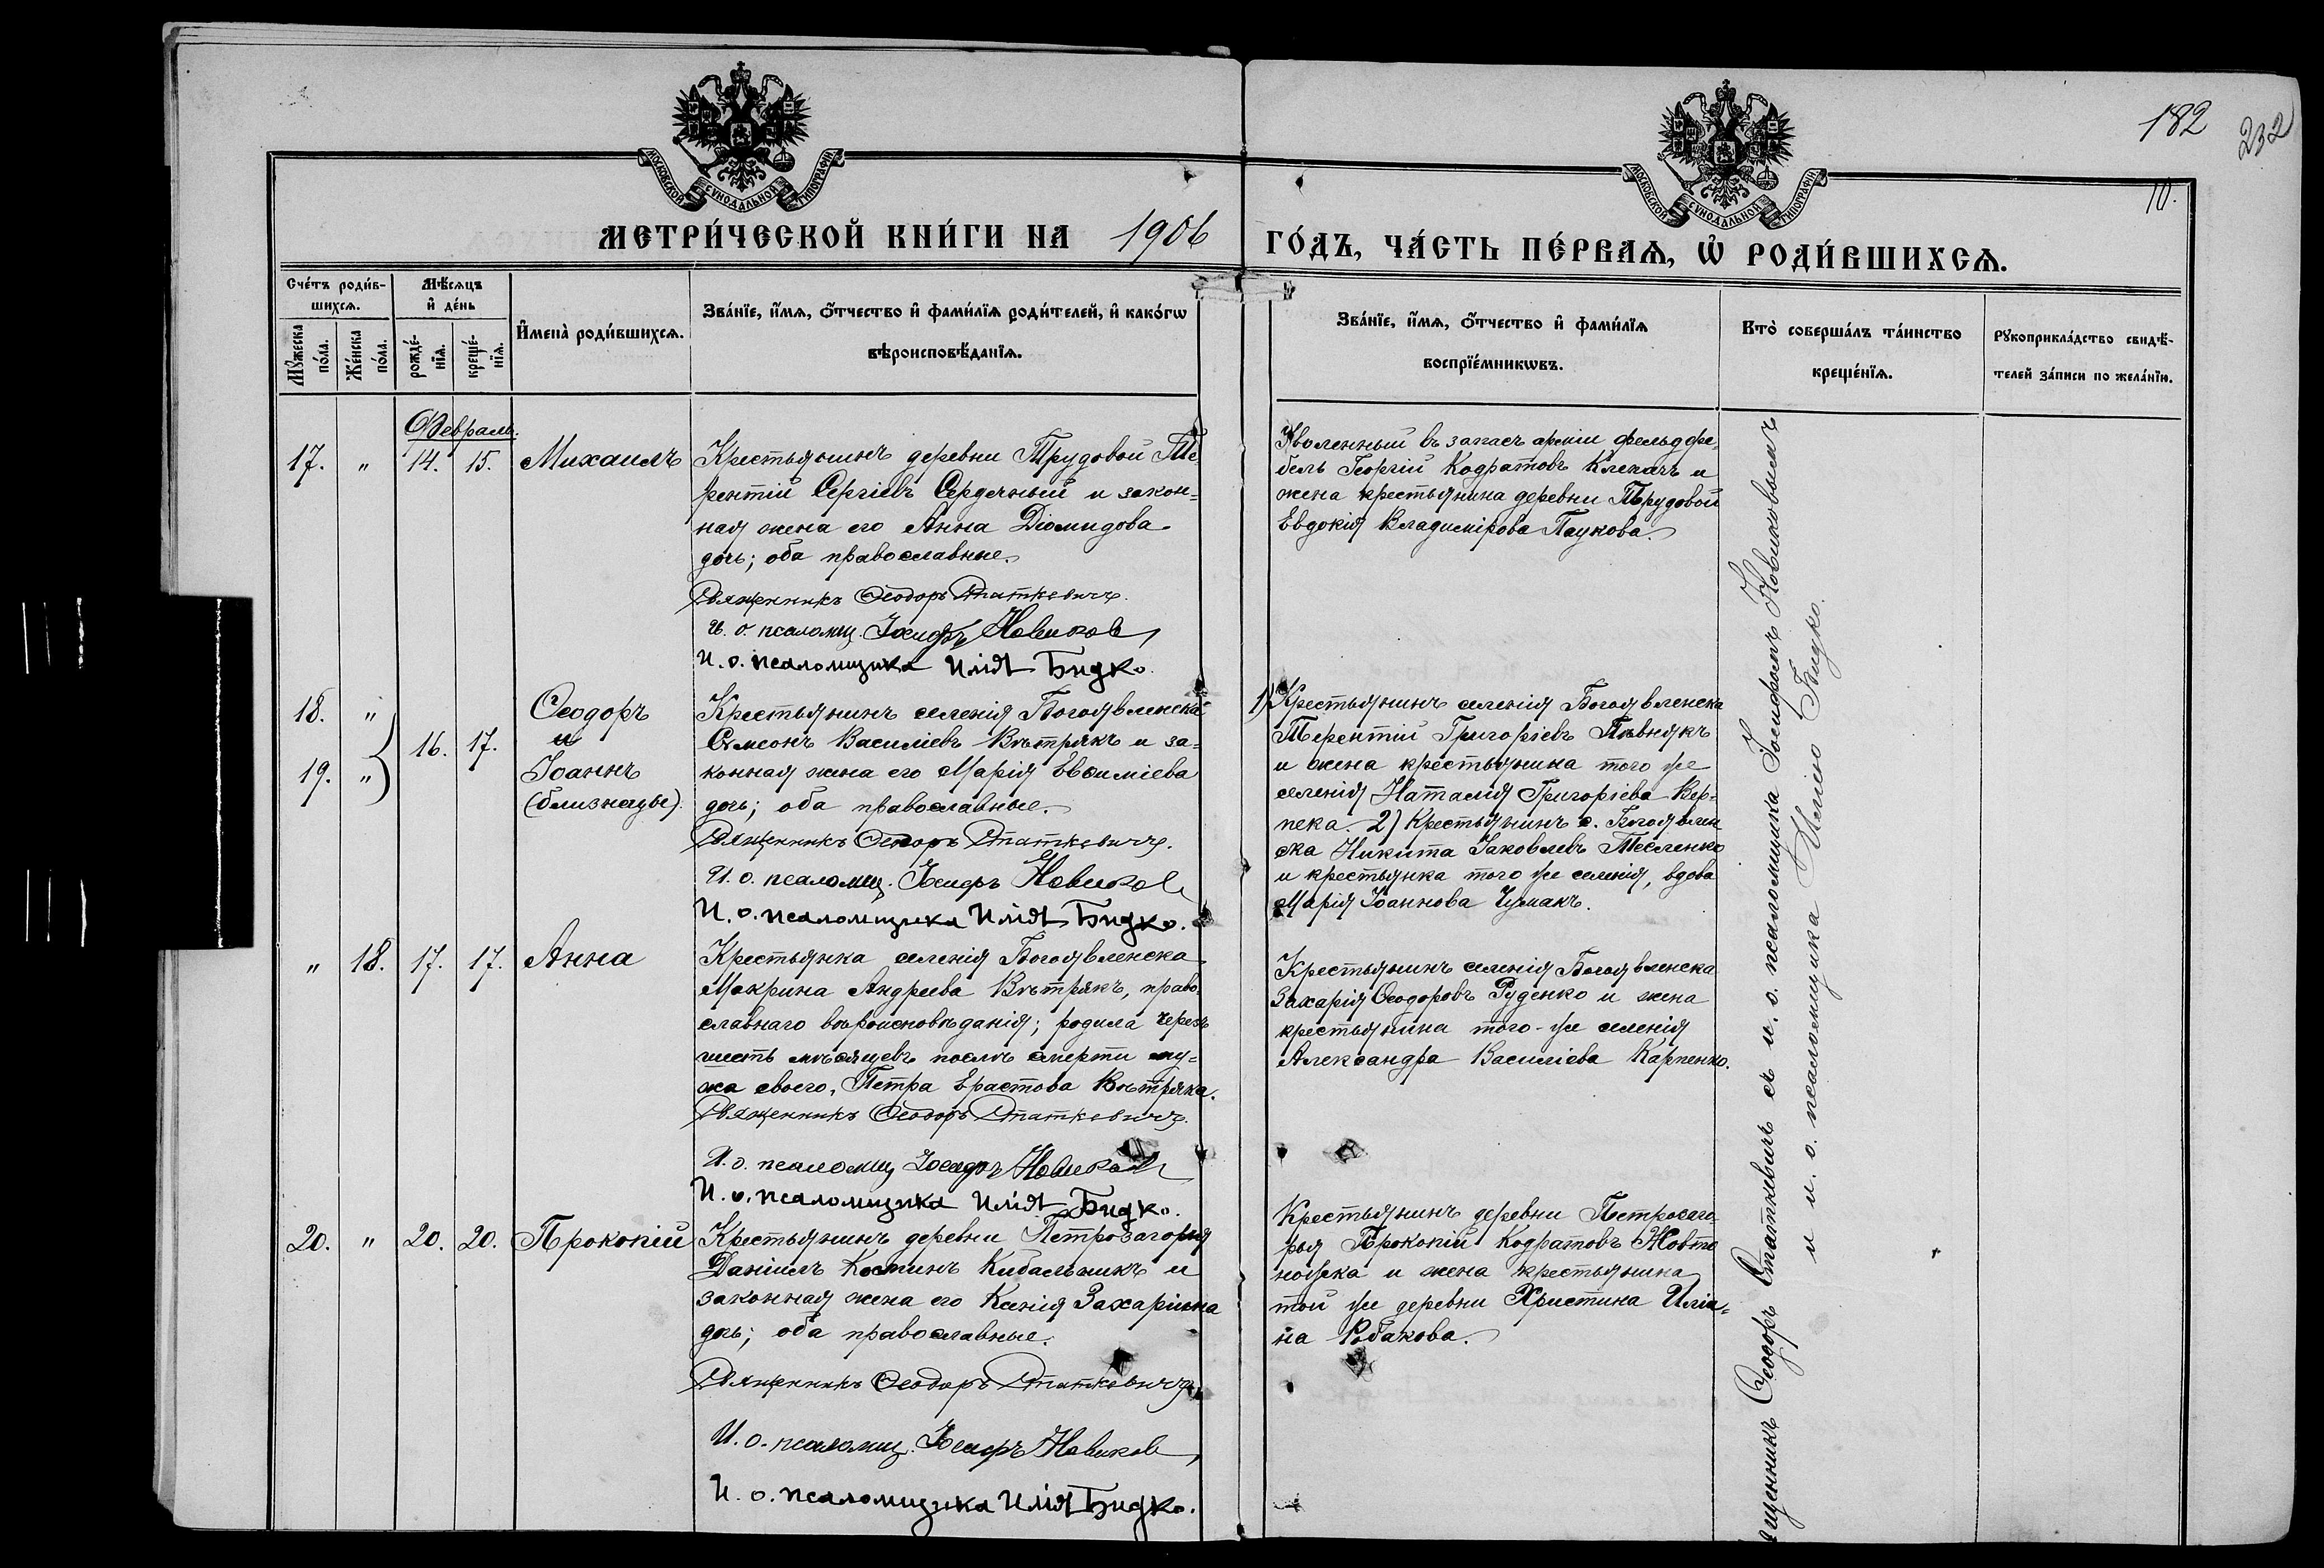 182
232
10.
МОСКОВСКОЙ СѴНОДАЛЬНОЙ ТИПОГРАФІИ
МОСКОВСКОЙ СѴНОДАЛЬНОЙ ТИПОГРАФІИ
МЕТРИ́ЧЕСКОЙ КНИ́ГИ НА 1906 ГО́ДЪ, ЧА́СТЬ ПЕ́РВАѦ, Ѡ҆ РОДИ́ВШИХСѦ.
Сче́тъ роди́в-
шихсѧ.
Мꙋ́жеска
по́ла.
Же́нска
по́ла.
Мѣ́сѧцъ
и҆ де́нь
рожде́-
нїѧ.
креще́-
нїѧ.
И҆мена̀ роди́вшихсѧ.
Зва́нїе, и҆́мѧ, ѻ҆́тчество и҆ фами́лїѧ роди́телей, и҆ како́гѡ
вѣроисповѣ́данїѧ.
Зва́нїе, и҆́мѧ, ѻ҆́тчество и҆ фами́лїѧ
воспрїе́мникѡвъ.
Кто̀ соверша́лъ та́инство
креще́нїѧ.
Рꙋкоприкла́дство свидѣ́-
телей за́писи по жела́нїю.
Февраль.
17. " 14. 15. Михаилъ
Крестьянинъ деревни Трудовой Те-
рентій Сергіевъ Сердечный и закон-
ная жена его Анна Діомидова
дочь; оба православные.
Священникъ Ѳеодоръ Статкевичъ.
И. о. псаломщ. Іосифъ Новиковъ
И. о. псаломщика Илія Бидко.
Уволенный въ запасъ арміи фельдфе-
бель Георгій Кодратовъ Клекачъ и
жена крестьянина деревни Трудовой
Евдокія Владимірова Паукова.
18. "
19. "
16. 17.
Ѳеодоръ
и
Іоаннъ
(близнецы).
Крестьянинъ селенія Богоявленска
Симеонъ Василіевъ Вѣтрякъ и за-
конная жена его Марія Евѳиміева
дочь; оба православные.
Священникъ Ѳеодоръ Статкевичъ.
И. о. псаломщ. Іосифъ Новиковъ
И. о. псаломщика Илія Бидко.
1) Крестьянинъ селенія Богоявленска
Терентій Григоріевъ Пѣвнякъ
и жена крестьянина того же
селенія Наталія Григоріева Вер-
пека. 2) Крестьянинъ с. Богоявлен
ска Никита Іаковлевъ Тесленко
и крестьянка того же селенія, вдова
Марія Іоаннова Чумакъ.
" 18. 17. 17. Анна
Крестьянка селенія Богоявленска
Макрина Андреева Вѣтрякъ, право-
славнаго вѣроисповѣданія; родила черезъ
шесть мѣсяцевъ послѣ смерти му-
жа своего, Петра Ерастова Вѣтряка.
Священникъ Ѳеодоръ Статкевичъ.
И. о. псаломщ Іосифъ Новиковъ
И. о. псаломщика Илія Бидко.
Крестьянинъ селенія Богоявленска
Захарія Ѳеодоровъ Руденко и жена
крестьянина того-же селенія
Александра Василіева Карпенко.
20. " 20. 20. Прокопій
Крестьянинъ деревни Петрозагорья
Даніилъ Косминъ Кибальникъ и
законная жена его Ксенія Захаріина
дочь; оба православные.
Священникъ Ѳеодоръ Статкевичъ.
И. о. псаломщ. Іосифъ Новиковъ
И. о. псаломщика Илія Бидко.
Крестьянинъ деревни Петрозаго-
рья Прокопій Кодратовъ Жовто
ножка и жена крестьянина
той же деревни Христина Иліи-
на Рѣбакова.
ященникъ Ѳеодоръ Статкевичъ съ и. о. псаломщика Іосифомъ Новиковымъ
и и. о. псаломщика Иліею Бидко.